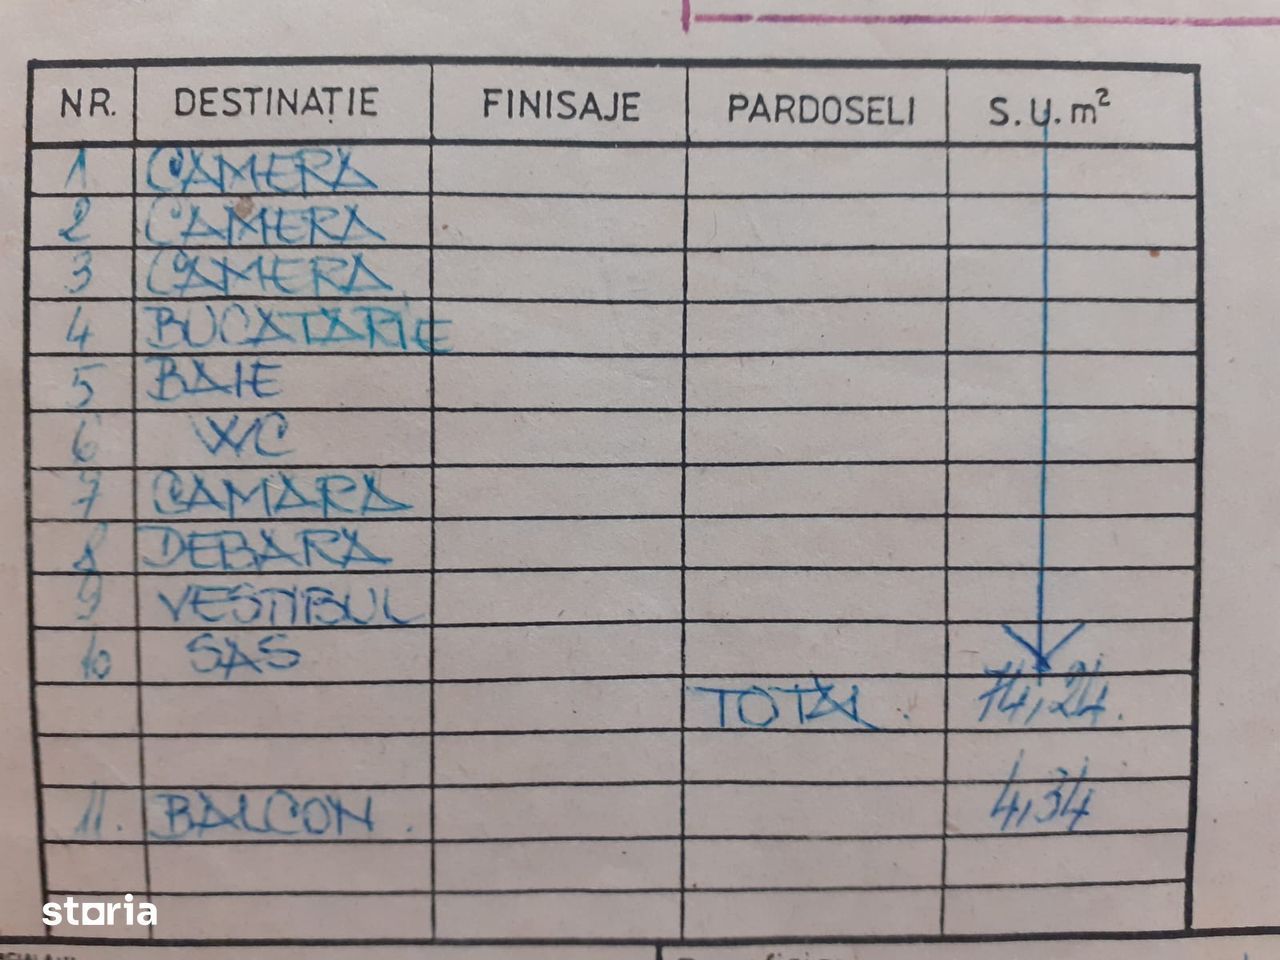 NR. DESTINAȚIE FINISAJE PARDOSELI S.U.m²
1 CAMERA
2 CAMERA
3 CAMERA
4 BUCATARIE
5 BAIE
6 WC
7 CAMARA
8 DEBARA
9 VESTIBUL
10 SAS
TOTAL. 74,24.
11. BALCON. 4,34
storia